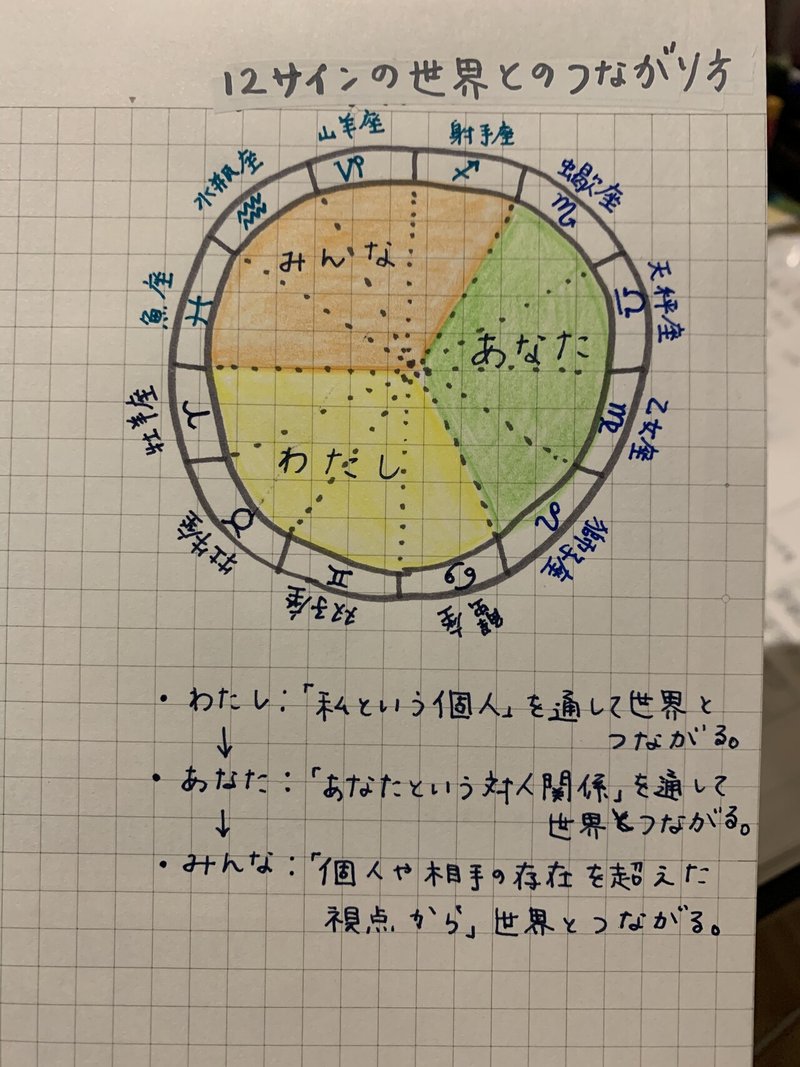 12サインの世界とのつながり方
山羊座
射手座
水瓶座
蠍座
♑
♐
♒
♏
魚座
天秤座
♓
みんな
♎
あなた
牡羊座
♈
♍
乙女座
わたし
牡牛座
♉
♌
獅子座
♊
♋
双子座
蟹座
・わたし:「私という個人」を通して世界と
つながる。
↓
・あなた:「あなたという対人関係」を通して
世界とつながる。
↓
・みんな:「個人や相手の存在を超えた
視点から」世界とつながる。